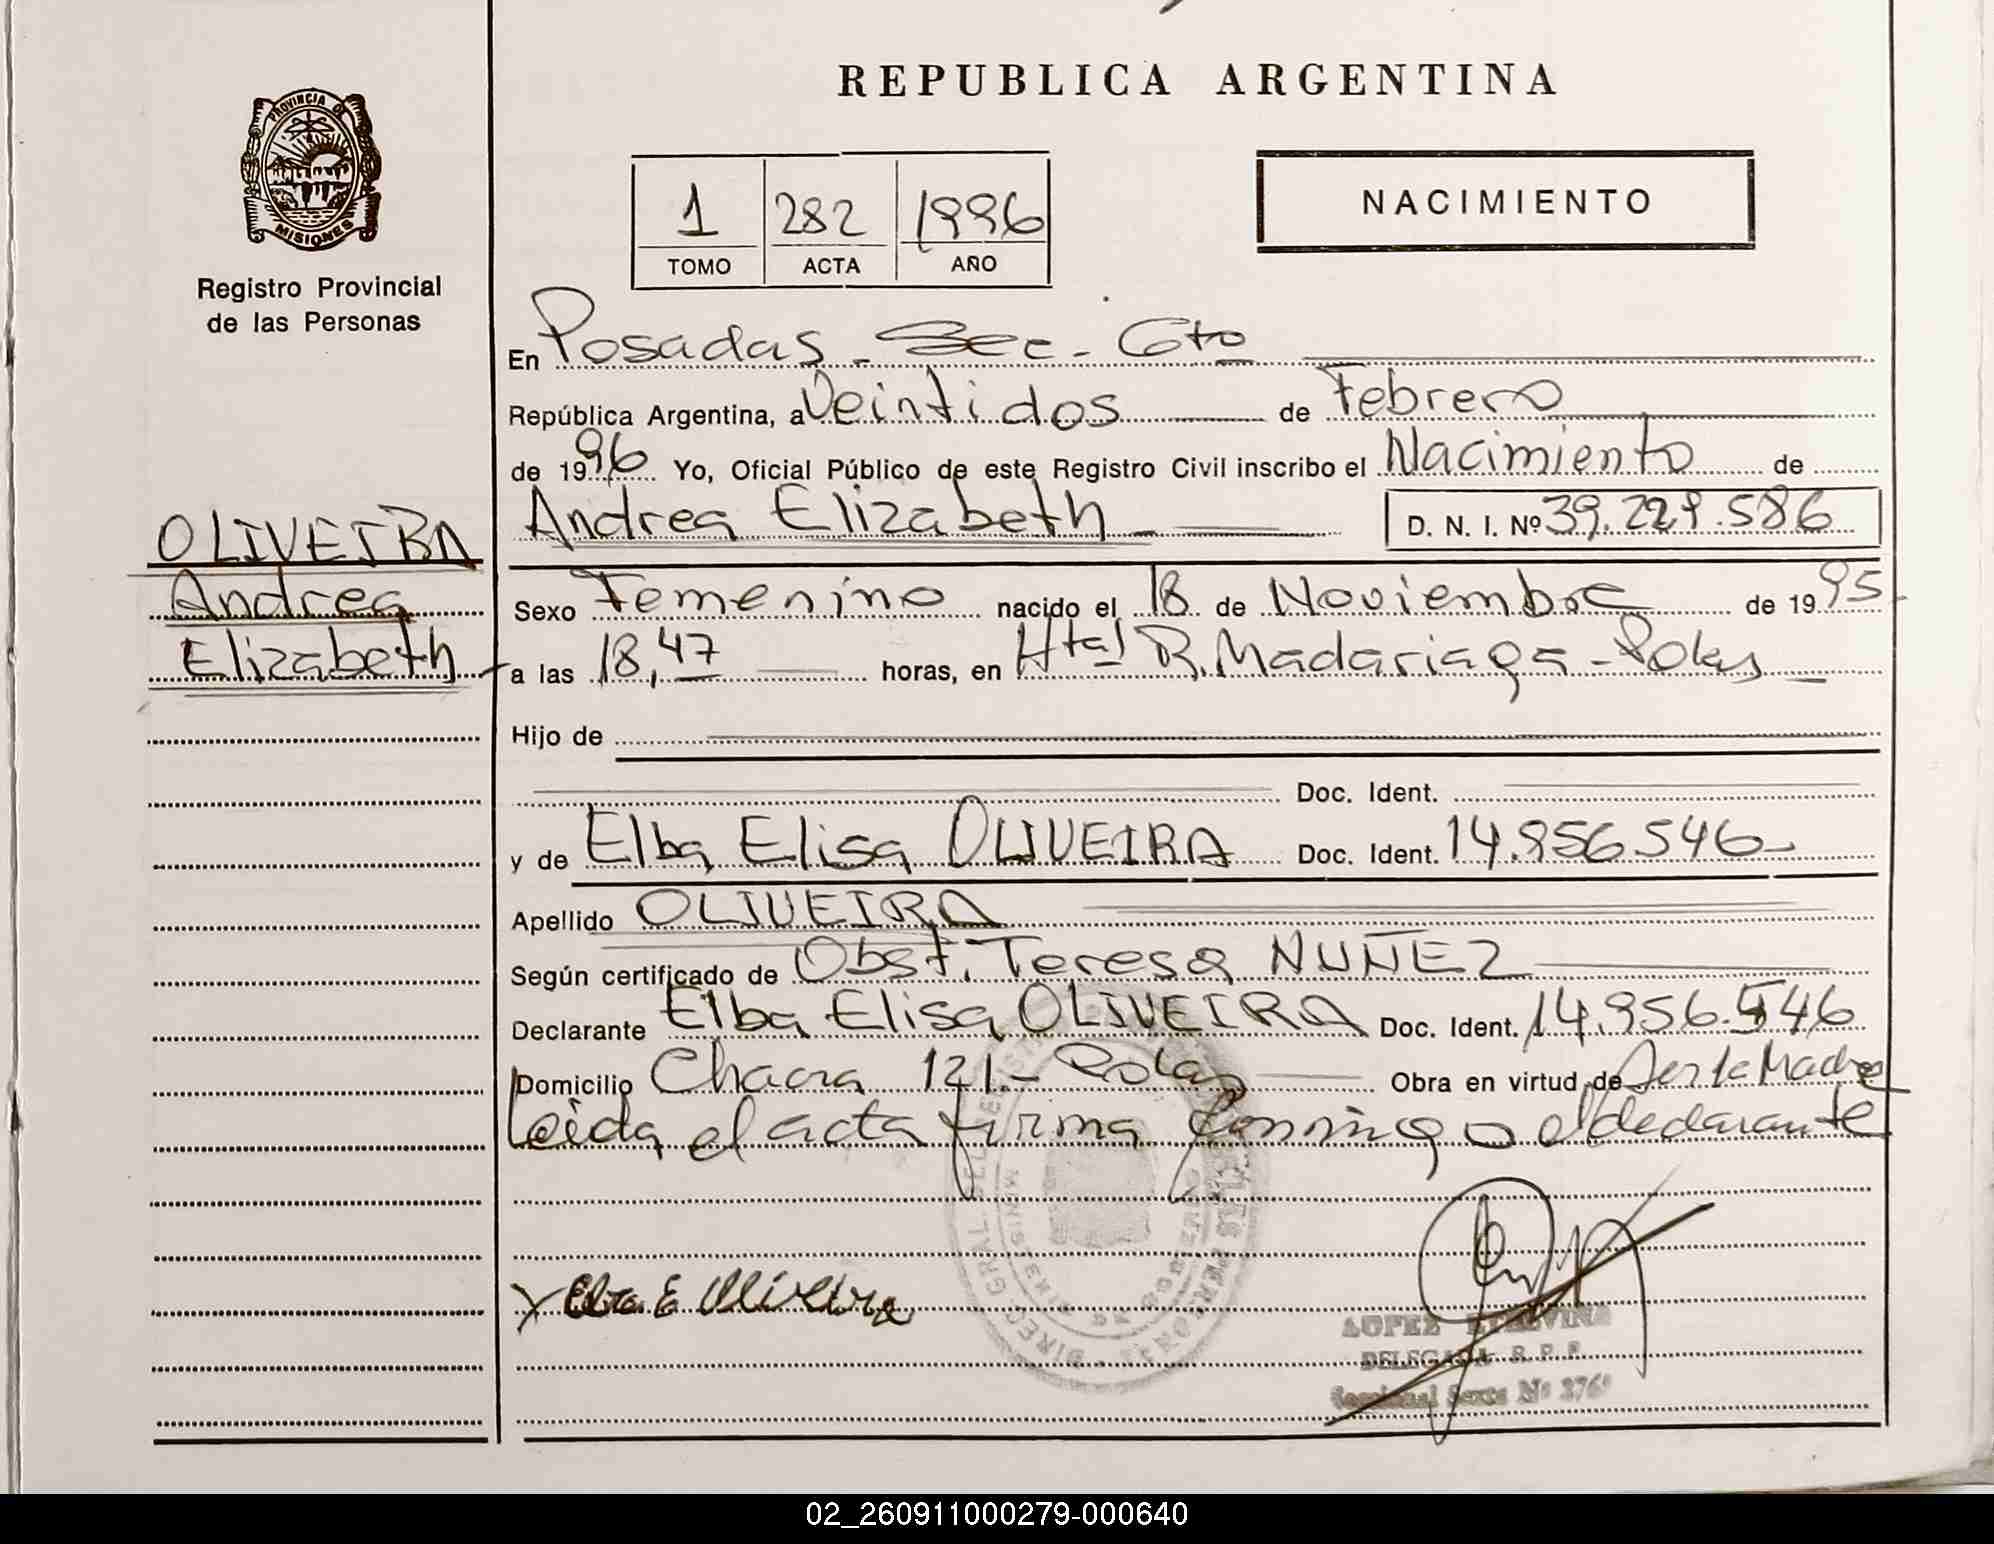 REPUBLICA ARGENTINA
PROVINCIA DE
MISIONES
Registro Provincial
de las Personas
1 282 1996
TOMO ACTA AÑO
NACIMIENTO
En Posadas - Sec. 6to
República Argentina, a Veintidos de Febrero
de 1996 Yo, Oficial Público de este Registro Civil inscribo el Nacimiento de
Andrea Elizabeth D. N. I. Nº 39.229.586
OLIVEIRA
Andrea
Elizabeth
Sexo Femenino nacido el 18 de Noviembre de 1995
a las 18,47 horas, en Htal R. Madariaga - Pdas
Hijo de
Doc. Ident.
y de Elba Elisa OLIVEIRA Doc. Ident. 14.956.546
Apellido OLIVEIRA
Según certificado de Obst. Teresa NUÑEZ
Declarante Elba Elisa OLIVEIRA Doc. Ident. 14.956.546
Domicilio Chacra 121.- Pdas Obra en virtud de Ser la Madre
Leida el acta firma conmigo el declarante
Elba E Oliveira
LOPEZ ETELVINA
DELEGADA R. P. P.
Seccional Sexta Nº 376
02_260911000279-000640